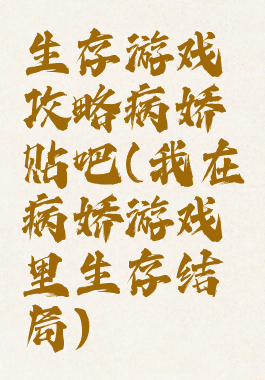 生存游戏
攻略病娇
贴吧(我在
病娇游戏
里生存结
局)